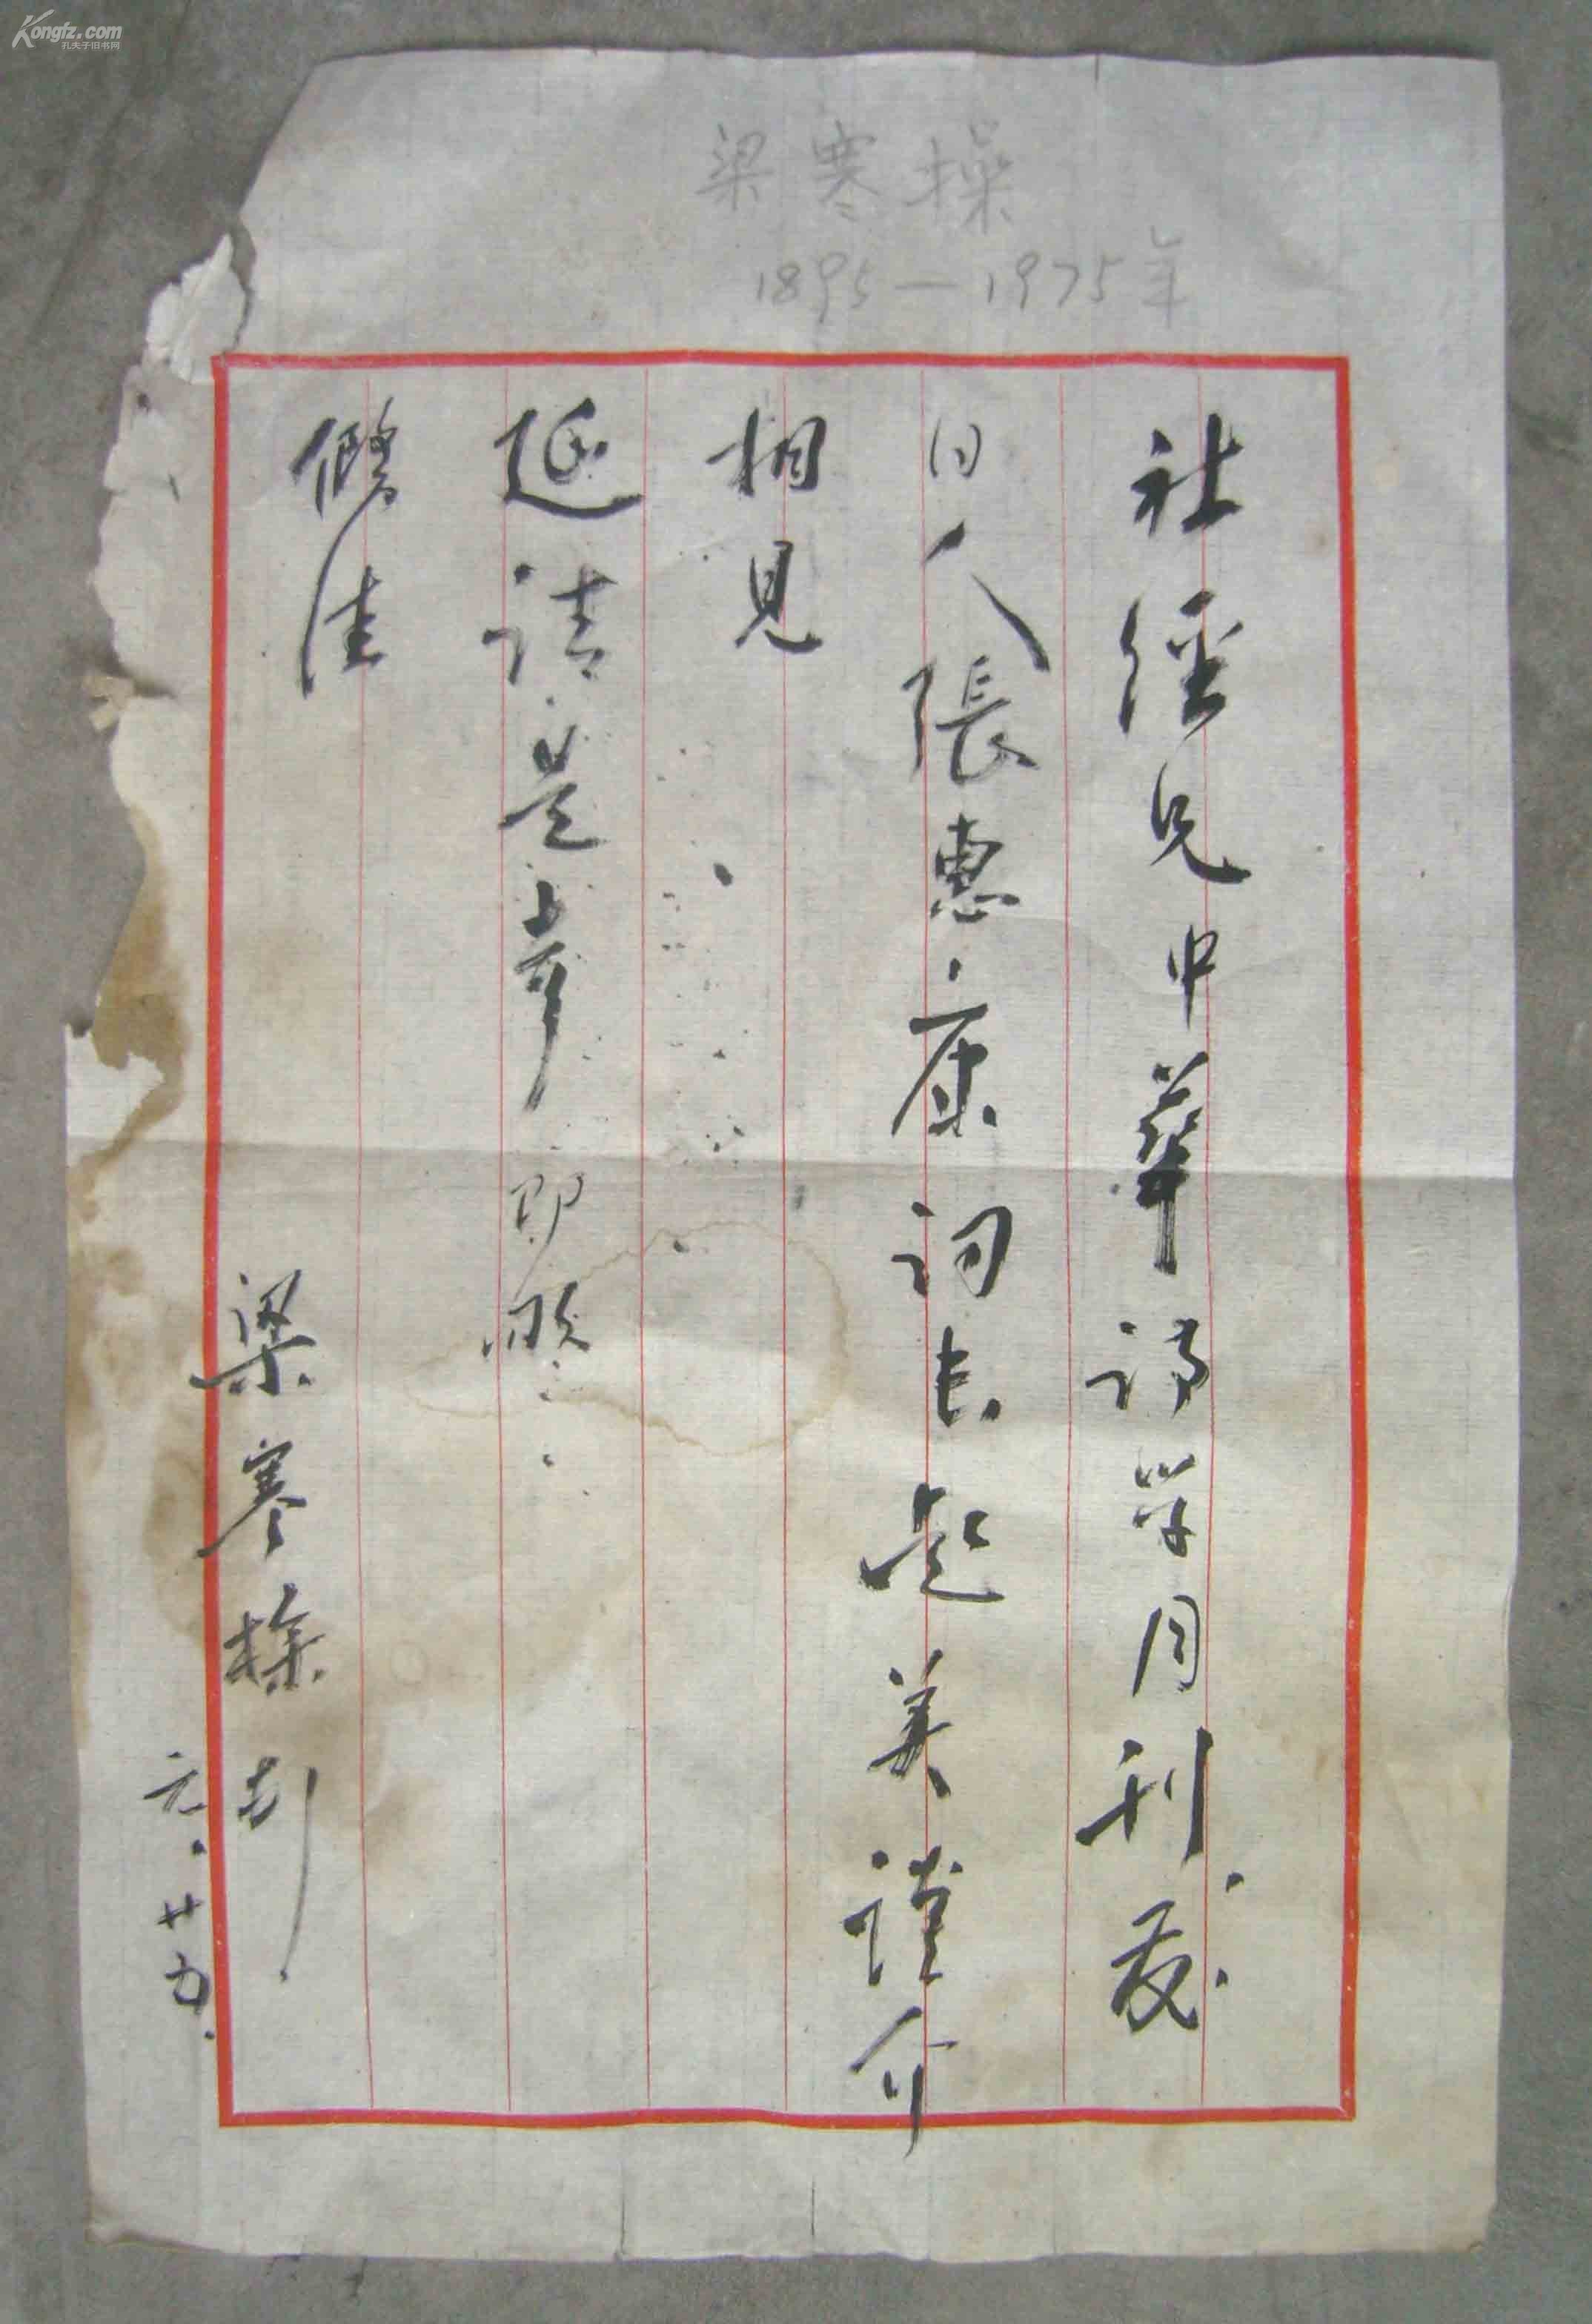 Kongfz.com
孔夫子旧书网
梁寒操
1895—1975年
社经兄中華詩学月刊發
日人張惠康詞長起美謹介
相見
延請是幸即頌
儷佳
梁寒操
元、廿五